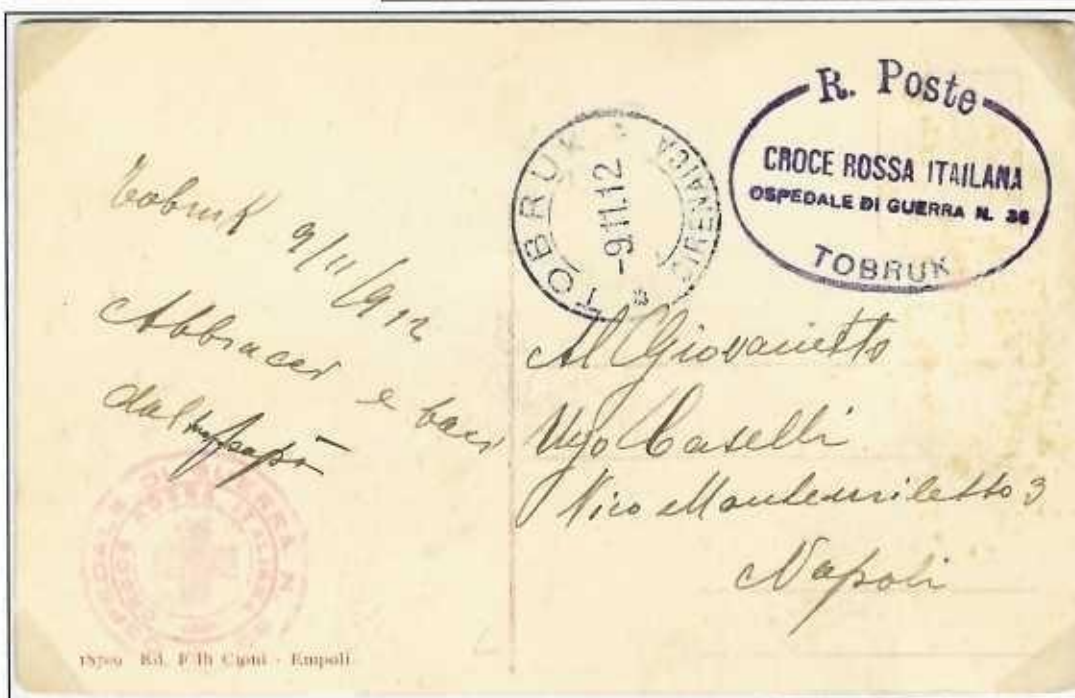 R. Poste
CROCE ROSSA ITAILANA
OSPEDALE DI GUERRA N. 36
TOBRUK
TOBRUK
CIRENAICA
-9.11.12
Tobruk 9/11/912
Abbracci e baci
dal tuo papà
Al Giovanetto
Ugo Caselli
Vico Montemiletto 3
Napoli
OSPEDALE DI GUERRA N.
CROCE ROSSA ITALIANA
Ed. F.lli Cioni - Empoli